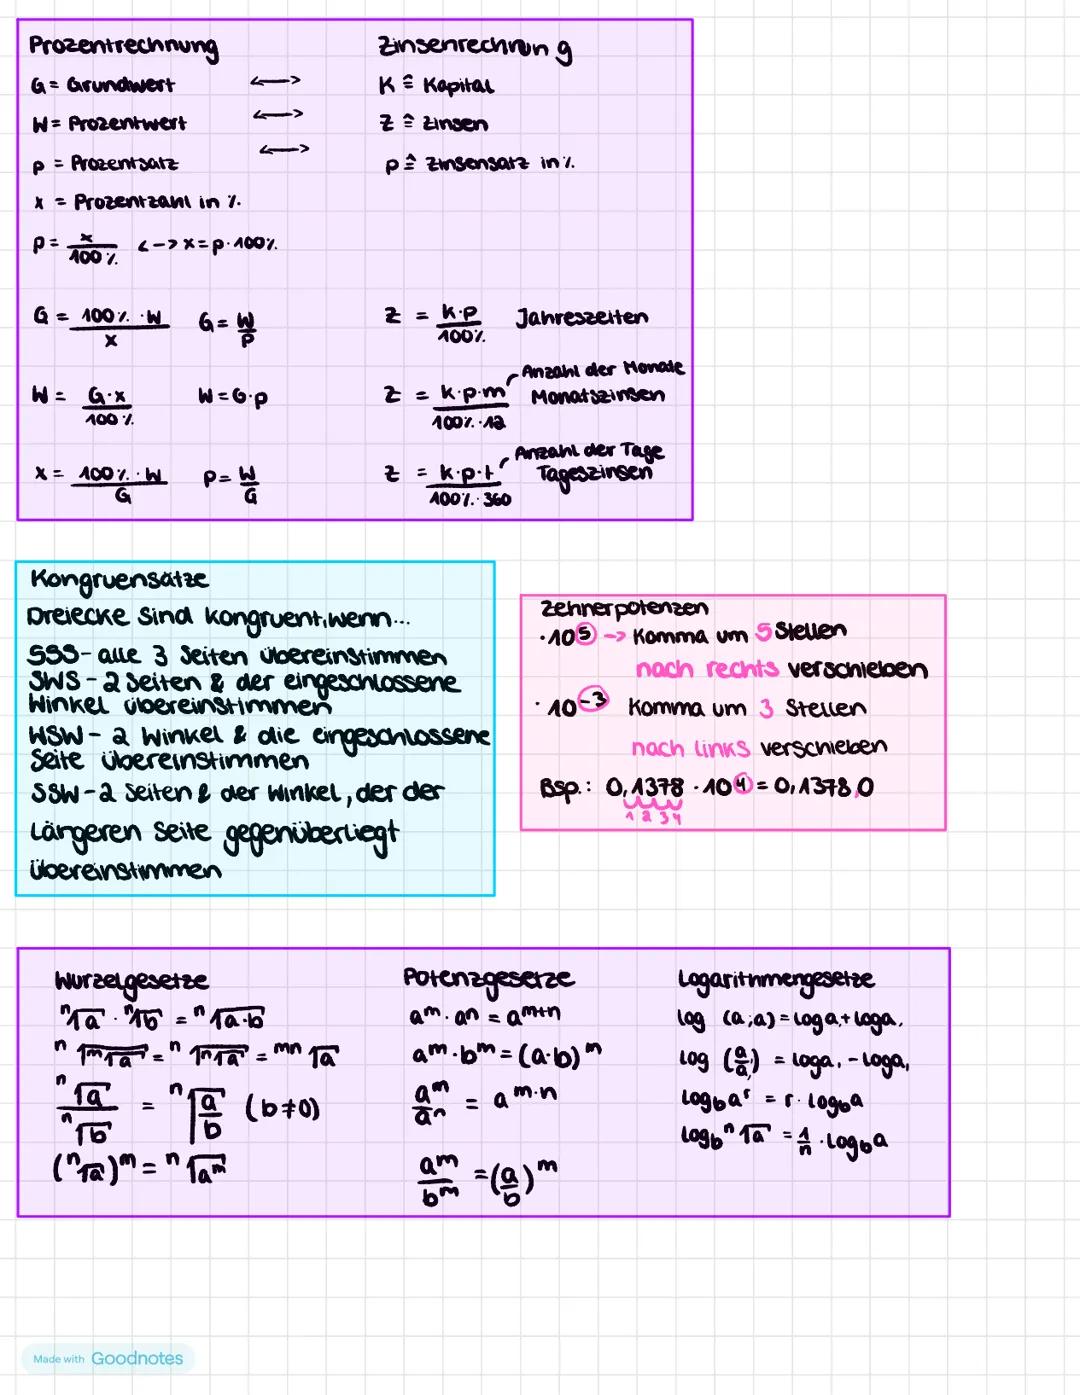 Prozentrechnung
G = Grundwert <-->
W = Prozentwert <-->
p = Prozentsatz <-->
x = Prozentzahl in %.
p = x/100 % <-> x = p · 100%.
G = 100% · W / x    G = W/p
W = G·x / 100 %    W = G·p
x = 100% · W / G    p = W/G
Zinsenrechnung
K ≙ Kapital
Z ≙ Zinsen
p ≙ Zinsensatz in %.
Z = K·p / 100%. Jahreszeiten
Anzahl der Monate
Z = K·p·m / 100%·12 Monatszinsen
Anzahl der Tage
Z = K·p·t / 100%·360 Tageszinsen
Kongruensätze
Dreiecke sind kongruent, wenn...
SSS - alle 3 Seiten übereinstimmen
SWS - 2 Seiten & der eingeschlossene
Winkel übereinstimmen
WSW - 2 Winkel & die eingeschlossene
Seite übereinstimmen
SSW - 2 Seiten & der Winkel, der der
Längeren Seite gegenüberliegt
übereinstimmen
Zehnerpotenzen
·10^5 -> Komma um 5 Stellen
nach rechts verschieben
·10^-3 Komma um 3 Stellen
nach links verschieben
Bsp.: 0,1378 · 10^4 = 0,1378,0
1 2 3 4
Wurzelgesetze
ⁿ√a · ⁿ√b = ⁿ√a·b
ⁿ√ᵐ√a = ⁿ√ⁿ√a = ᵐⁿ√a
ⁿ√a / ⁿ√b = ⁿ√a/b (b≠0)
(ⁿ√a)^m = ⁿ√a^m
Potenzgesetze
a^m · a^n = a^m+n
a^m · b^m = (a·b)^m
a^m / a^n = a^m·n
a^m / b^m = (a/b)^m
Logarithmengesetze
log (a,a) = loga, + loga,
log (a/a,) = loga, - loga,
log_b a^r = r · log_b a
log_b ⁿ√a = 1/n · log_b a
Made with Goodnotes